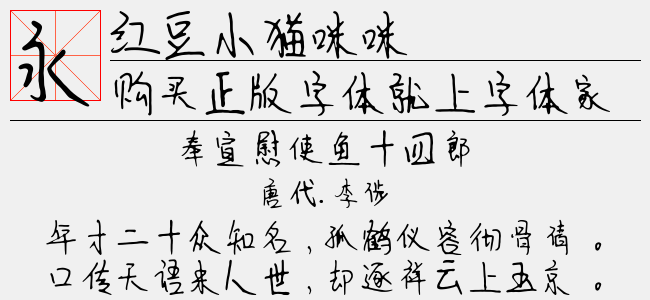 永
红豆小猫咪咪
购买正版字体就上字体家
奉宣慰使鱼十四郎
唐代.李涉
年才二十众知名,孤鹤仪容彻骨清。
口传天语来人世,却逐祥云上玉京。